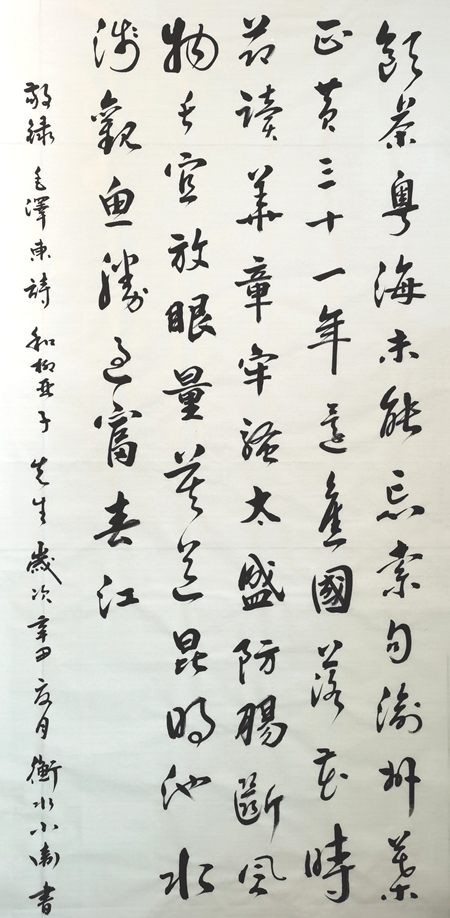 飲茶粵海未能忘索句渝州葉
正黃三十一年還舊國落花時
節讀華章牢騷太盛防腸斷風
物長宜放眼量莫道昆明池水
淺觀魚勝過富春江
敬録毛澤東詩和柳亞子先生歲次辛丑夏月衡水小衛書